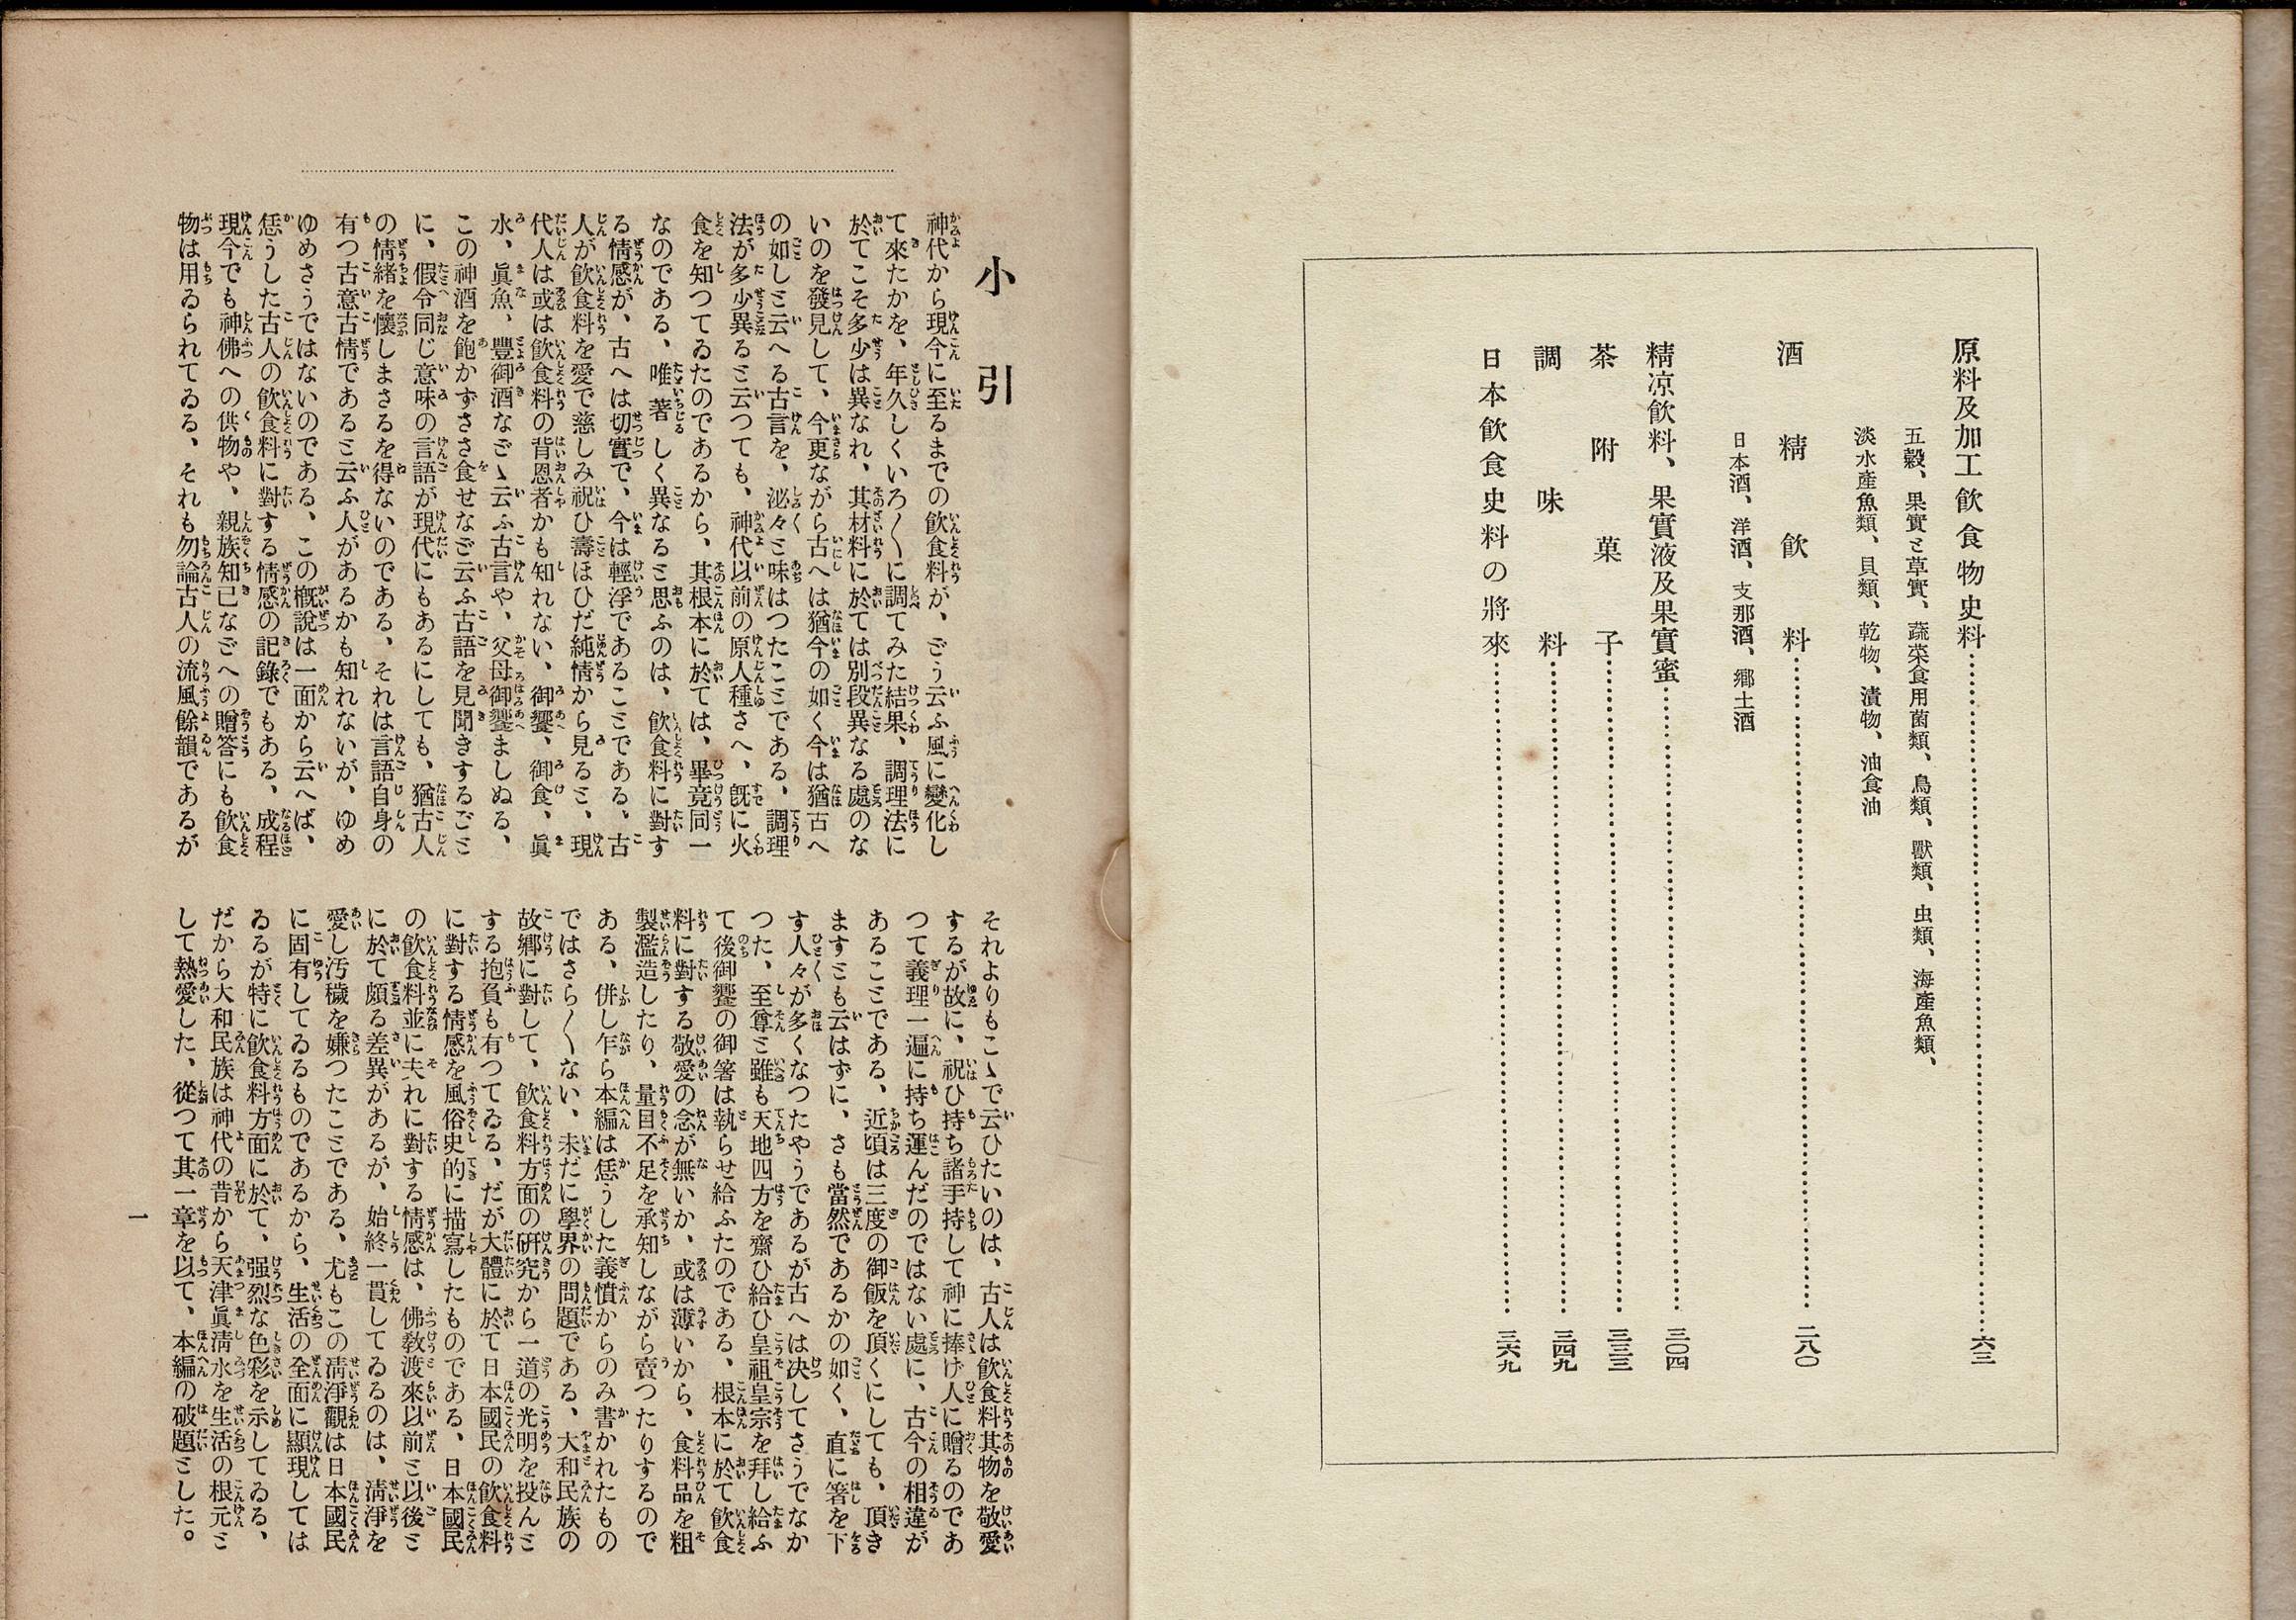 原料及加工飲食物史料……六三
五穀、果實と草實、蔬菜食用菌類、鳥類、獸類、虫類、海產魚類、
淡水產魚類、貝類、乾物、漬物、油食油
酒精飲料……二八〇
日本酒、洋酒、支那酒、鄉土酒
精凉飲料、果實液及果實蜜……三〇四
茶附菓子……三三三
調味料……三四九
日本飲食史料の將來……三六九
小引
神代から現今に至るまでの飲食料が、どう云ふ風に變化し
て來たかを、年久しくいろ〱に調てみた結果、調理法に
於てこそ多少は異なれ、其材料に於ては別段異なる處のな
いのを發見して、今更ながら古へは猶今の如く今は猶古へ
の如しと云へる古言を、泌々と味はつたことである、調理
法が多少異ると云つても、神代以前の原人種さへ、既に火
食を知つてゐたのであるから、其根本に於ては、畢竟同一
なのである、唯著しく異なると思ふのは、飲食料に對す
る情感が、古へは切實で、今は輕浮であることである。古
人が飲食料を愛で慈しみ祝ひ壽ほひだ純情から見ると、現
代人は或は飲食料の背恩者かも知れない、御饗、御食、眞
水、眞魚、豐御酒などゝ云ふ古言や、父母御饗ましぬる、
この神酒を飽かずささ食せなど云ふ古語を見聞きするごと
に、假令同じ意味の言語が現代にもあるにしても、猶古人
の情緒を懷しまさるを得ないのである、それは言語自身の
有つ古意古情であると云ふ人があるかも知れないが、ゆめ
ゆめさうではないのである、この槪說は一面から云へば、
恁うした古人の飲食料に對する情感の記錄でもある、成程
現今でも神佛への供物や、親族知己などへの贈答にも飲食
物は用ゐられてゐる、それも勿論古人の流風餘韻であるが
それよりもこゝで云ひたいのは、古人は飲食料其物を敬愛
するが故に、祝ひ持ち諸手持して神に捧げ人に贈るのであ
つて義理一遍に持ち運んだのではない處に、古今の相違が
あることである、近頃は三度の御飯を頂くにしても、頂き
ますとも云はずに、さも當然であるかの如く、直に箸を下
す人々が多くなつたやうであるが古へは決してさうでなか
つた、至尊と雖も天地四方を齋ひ給ひ皇祖皇宗を拜し給ふ
て後御饗の御箸は執らせ給ふたのである、根本に於て飲食
料に對する敬愛の念が無いか、或は薄いから、食料品を粗
製濫造したり、量目不足を承知しながら賣つたりするので
ある、併し乍ら本編は恁うした義憤からのみ書かれたもの
ではさら〱ない、未だに學界の問題である、大和民族の
故鄉に對して、飲食料方面の研究から一道の光明を投んと
する抱負も有つてゐる、だが大體に於て日本國民の飲食料
に對する情感を風俗史的に描寫したものである、日本國民
の飲食料並に夫れに對する情感は、佛敎渡來以前と以後と
に於て頗る差異があるが、始終一貫してゐるのは、淸淨を
愛し汚穢を嫌つたことである、尤もこの淸淨觀は日本國民
に固有してゐるものであるから、生活の全面に顯現しては
ゐるが特に飲食料方面に於て、强烈な色彩を示してゐる、
だから大和民族は神代の昔から天津眞淸水を生活の根元と
して熱愛した、從つて其一章を以て、本編の破題とした。
一